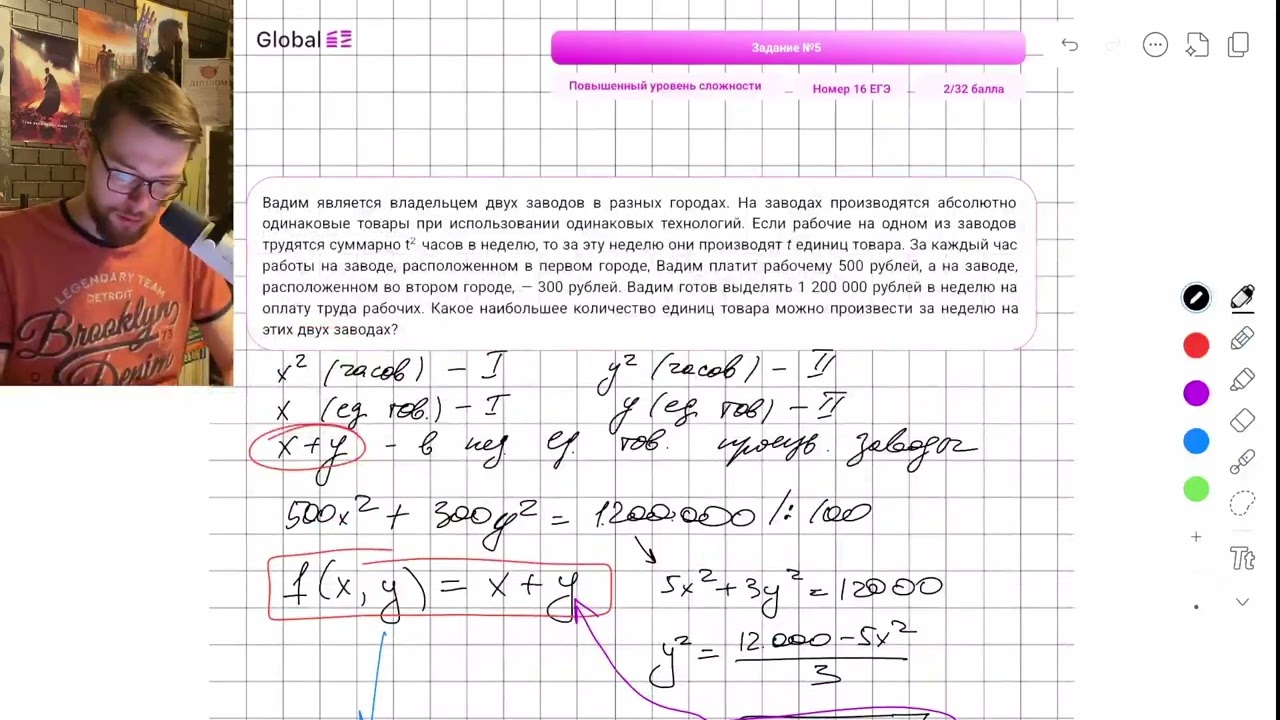 Global
Задание №5
Повышенный уровень сложности – Номер 16 ЕГЭ – 2/32 балла
Вадим является владельцем двух заводов в разных городах. На заводах производятся абсолютно
одинаковые товары при использовании одинаковых технологий. Если рабочие на одном из заводов
трудятся суммарно t² часов в неделю, то за эту неделю они производят t единиц товара. За каждый час
работы на заводе, расположенном в первом городе, Вадим платит рабочему 500 рублей, а на заводе,
расположенном во втором городе, — 300 рублей. Вадим готов выделять 1 200 000 рублей в неделю на
оплату труда рабочих. Какое наибольшее количество единиц товара можно произвести за неделю на
этих двух заводах?
x² (часов) – I y² (часов) – II
x (ед. тов.) – I y (ед. тов) – II
x + y – в нед. ед. тов. произв. заводы
500x² + 300y² = 1.200.000 /: 100
f(x, y) = x + y
5x² + 3y² = 12000
y² = 12.000 – 5x² / 3
LEGENDARY TEAM
DETROIT
Brooklyn
73
Denim
ДИПЛОМ
Tt